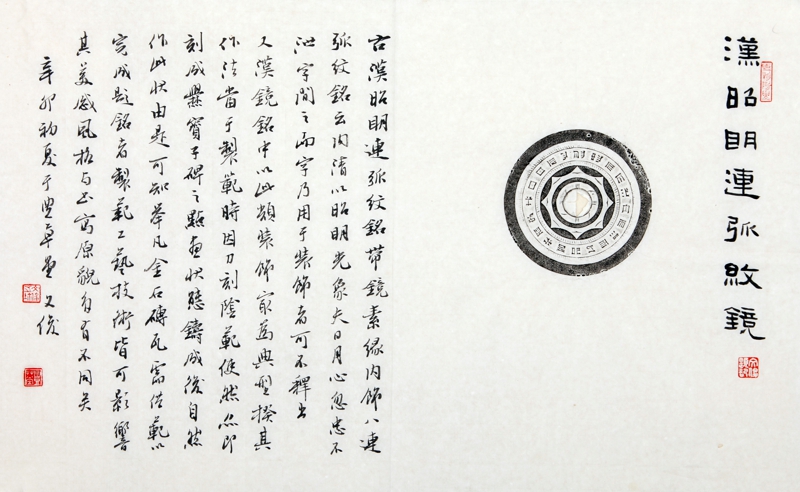 漢昭朙連弧紋鏡
古漢昭朙連弧紋銘帶鏡素緣內飾八連
弧紋銘云內清以昭明光象夫日月心忽忠不
泄字間之而字乃用于裝飾者可不釋出
又漢鏡銘中以此類裝飾最為典型揆其
作法當于製範時因刀刻陰範使然亦即
刻成爨寶子碑之點畫狀態鑄成後自然
作此狀由是可知舉凡金石磚瓦需範以
完成題銘者製範工藝技術皆可影響
其美感風格與書寫原貌自有不同矣
辛卯初夏于豐草堂文俊